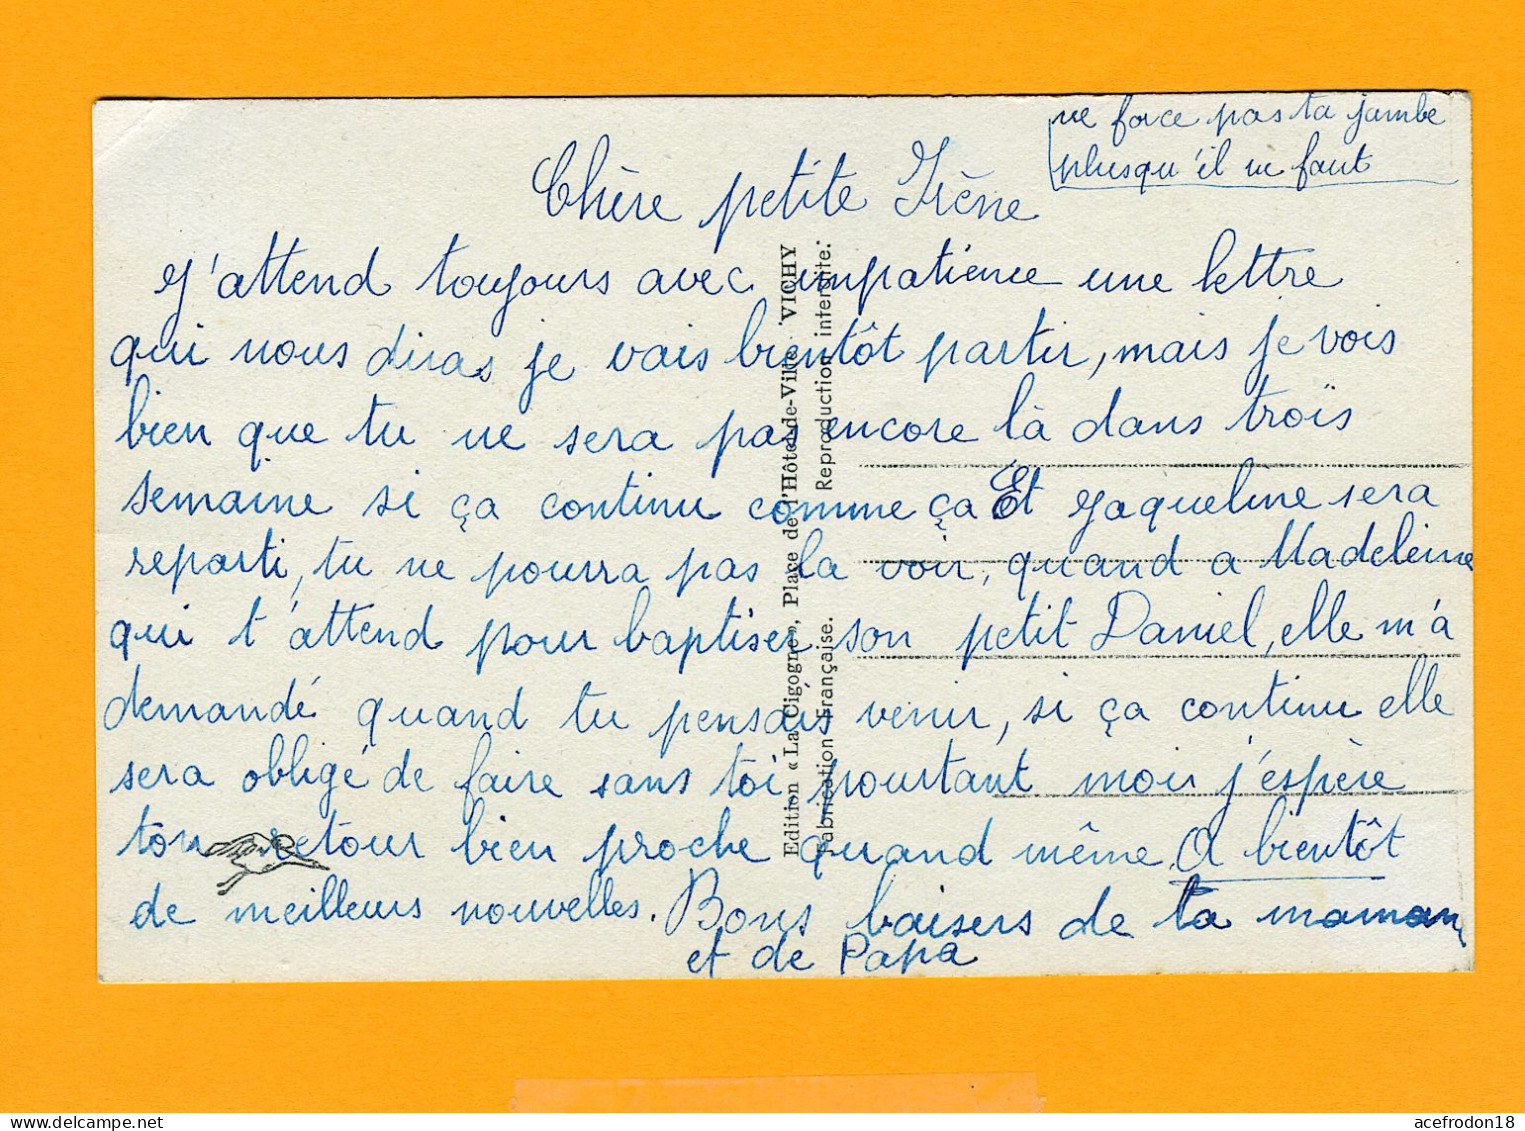 ne force pas ta jambe
plusqu'il ne faut
Chère petite Irène
J'attend toujours avec impatience une lettre
qui nous diras je vais bientôt partir, mais je vois
bien que tu ne sera pas encore là dans trois
semaine si ça continu comme ça Et Jaqueline sera
reparti, tu ne pourra pas la voir, quand a Madeleine
qui t'attend pour baptiser son petit Daniel, elle m'a
demandé quand tu pensais venir, si ça continu elle
sera obligé de faire sans toi pourtant moi j'espère
ton retour bien proche quand même. A bientôt
de meilleurs nouvelles. Bons baisers de ta maman
et de Papa
Edition « La Cigogne », Place de l'Hôtel-de-Ville. VICHY
Fabrication Française. Reproduction interdite.
acefrodon18